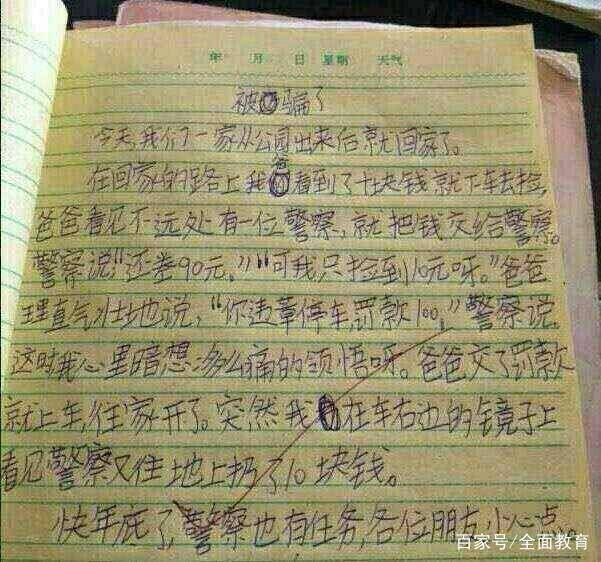 年 月 日 星期 天气
被骗了
今天我们一家从公园出来后就回家了。
在回家的路上我爸看到了十块钱就下车去捡,
爸爸看见不远处有一位警察,就把钱交给警察。
警察说"还差90元,""可我只捡到10元呀。"爸爸
理直气壮地说,"你违章停车,罚款100,"警察说。
这时我心里暗想:多么痛的领悟呀。爸爸交了罚款
就上车,往家开了。突然我在车右边的镜子上
看见警察又往地上扔了10块钱。
快年底了,警察也有任务,各位朋友,小心点
百家号/全面教育